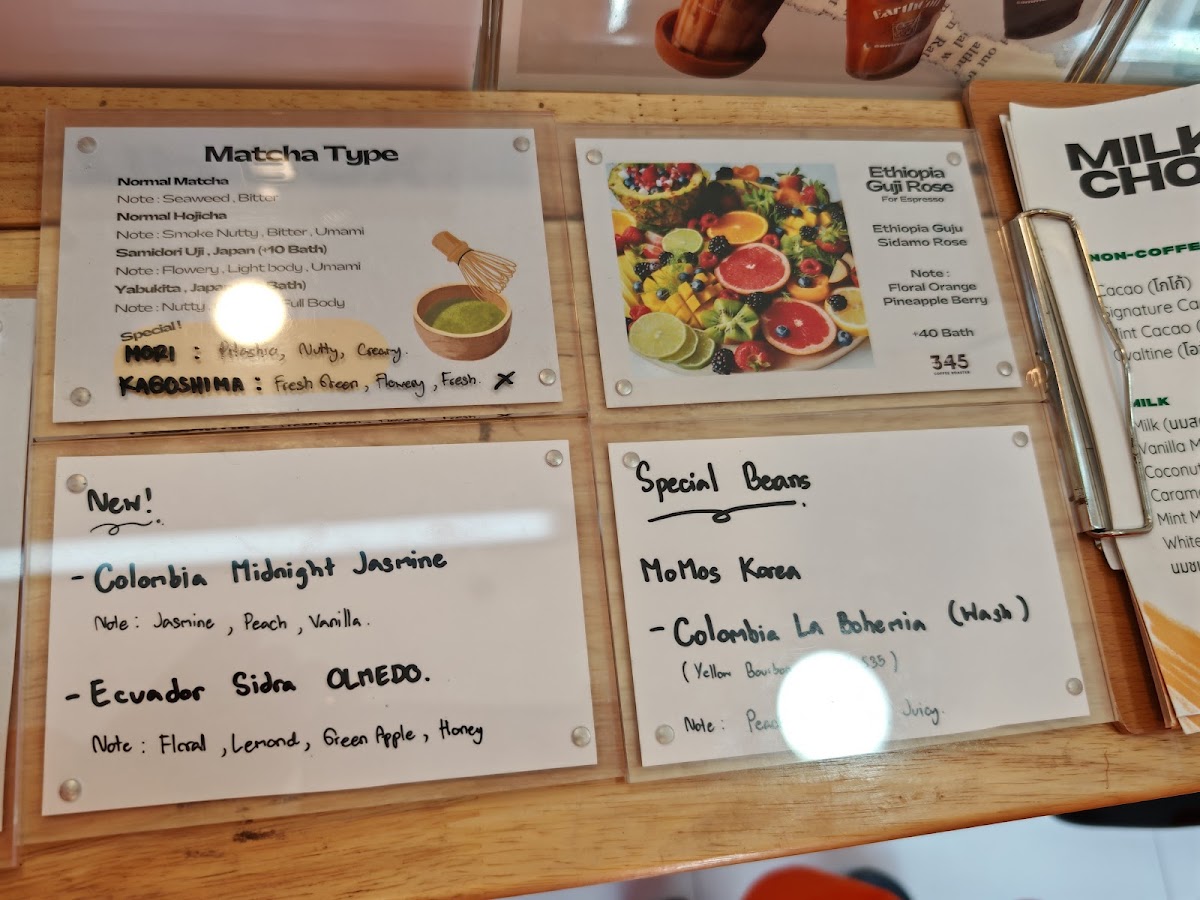 Matcha Type
Normal Matcha
Note : Seaweed , Bitter
Normal Hojicha
Note : Smoke Nutty , Bitter , Umami
Samidori Uji , Japan (+10 Bath)
Note : Flowery , Light body , Umami
Yabukita , Japan Bath)
Note : Nutty Full Body
Special!
MORI : Nutty, Creamy.
KAGOSHIMA : Fresh Green , Flowery , Fresh. X
Ethiopia
Guji Rose
For Espresso
Ethiopia Guju
Sidamo Rose
Note :
Floral Orange
Pineapple Berry
+40 Bath
345
COFFEE ROASTER
New!
- Colombia Midnight Jasmine
Note : Jasmine , Peach , Vanilla .
- Ecuador Sidra OLMEDO.
Note : Floral , Lemond , Green Apple , Honey
Special Beans
MoMos Korea
- Colombia La Bohemia (Wash)
(Yellow
Note : Juicy.
MILK
CHO
NON-COFFE
Cacao (โกโก้)
Signature Ca
Mint Cacao (
Ovaltine (โอ
MILK
Milk (นมส
Vanilla M
Coconut
Carame
Mint M
White
นมช